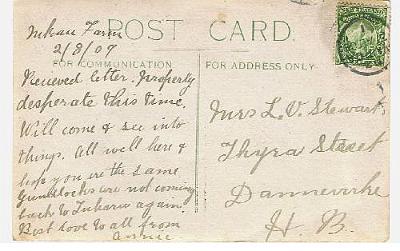 Inkau Farm
2/8/09
POST CARD.
FOR COMMUNICATION
FOR ADDRESS ONLY
Recieved letter. Properly
desperate this time.
Will come & see into
things. All well here &
hope you are the same
Gundlocks are not coming
back to again.
Best love to all from
Annie.
Mrs L. V. Stewart,
Thyra Street
Dannevirke
H. B.